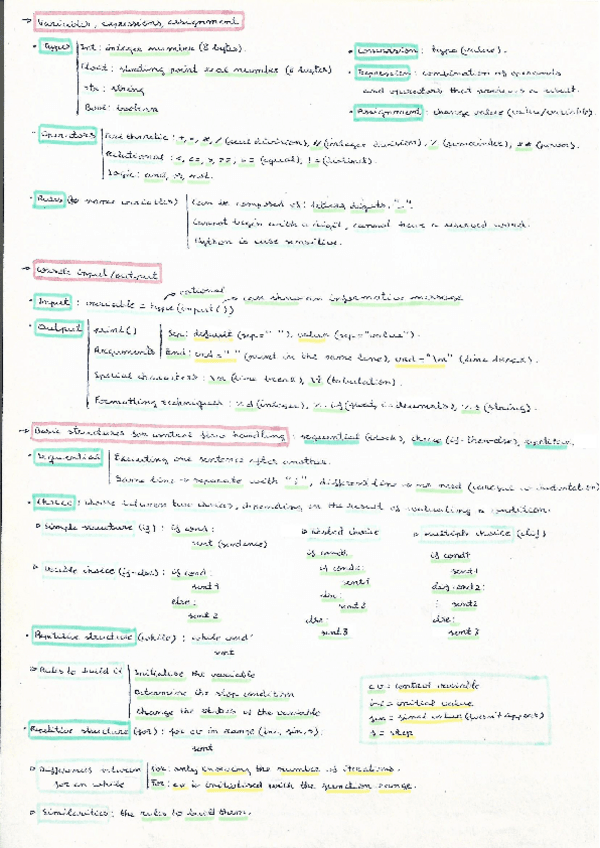 → Variables, expressions, assignment
· Types | Int: integer number (8 bytes).
Float: floating point real number (8 bytes)
Str: string
Bool: boolean
· Conversion: type (value).
· Expression: combination of operands
and operators that produces a result.
· Assignment: change value (value/variable).
· Operators | Arithmetic: +, -, *, / (real division), // (integer division), % (remainder), ** (power).
Relational: <, <=, >, >=, == (equal), != (distinct).
Logic: and, or, not.
· Rules (to name variables) | Can be composed of: letters, digits, "_".
Cannot begin with a digit, cannot have a reserved word.
Python is case sensitive.
→ Console input/output
optional
· Input: variable = type(input()) → can show an informative message
· Output | print() | Sep: default (sep=" "), value (sep="value").
Arguments | End: end=" " (print in the same line), end="\n" (line break).
Special characters: \n (line break), \t (tabulation).
Formatting techniques: %d (integer), %.if (float, i=decimals), %s (string).
→ Basic structures for control flow handling: sequential (block), choice (if-then-else), repetition.
· Sequential | Executing one sentence after another.
Same line → separate with ";", different line → no need (careful w indentation)
· Choice: chose between two choices, depending on the result of evaluating a condition.
▹ Simple structure (if): if cond:
sent (sentence)
▹ Double choice (if-else): if cond:
sent 1
else:
sent 2
▹ Nested choice
if cond1:
if cond2:
sent1
else:
sent2
else:
sent3
▹ Multiple choice (elif)
if cond1
sent1
elif cond2:
⋮ sent2
else:
sent 3
· Repetitive structure (while): while cond:
sent
▹ Rules to build it | Initialise the variable
Determine the stop condition
Change the states of the variable
cv = control variable
ini = initial value
fin = final value (doesn't appear)
s = step
· Repetitive structure (for): for cv in range (ini, fin, s):
sent
▹ Differences between | for: only knowing the number of iterations.
for an while | For: cv is initialised with the function range.
▹ Similarities: the rules to build them.